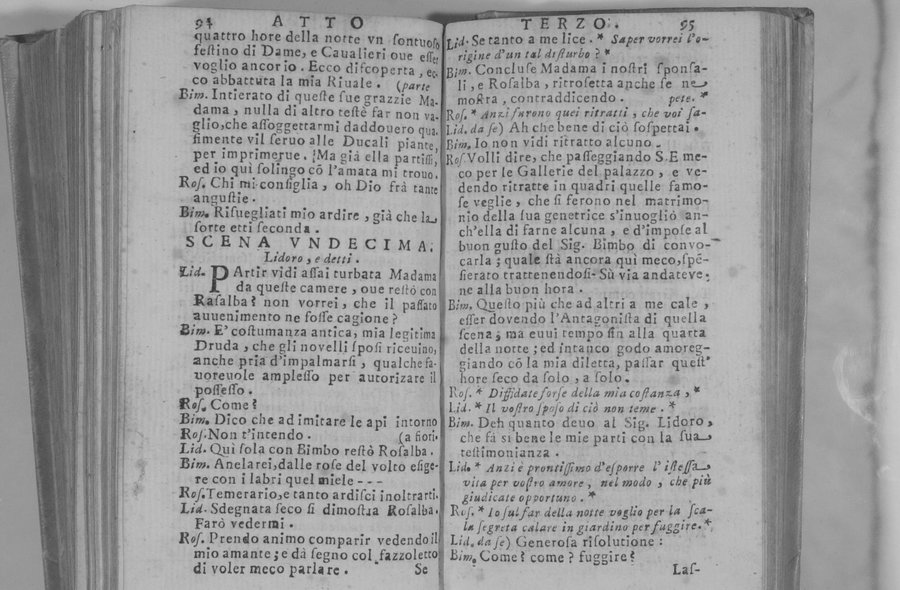 94 ATTO
quattro hore della notte vn sontuoso
festino di Dame, e Caualieri oue esser
voglio ancor io. Ecco discoperta, ec-
co abbattuta la mia Riuale. (parte
Bim. Intierato di queste sue grazzie Ma-
dama, nulla di altro testè far non va-
glio, che assoggettarmi daddouero qua-
simente vil seruo alle Ducali piante,
per imprimerue. Ma già ella partissi,
ed io quì solingo cō l'amata mi trouo.
Ros. Chi mi consiglia, oh Dio frà tante
angustie.
Bim. Risuegliati mio ardire, già che la
sorte etti seconda.
SCENA VNDECIMA.
Lidoro, e detti.
Lid. PArtir vidi assai turbata Madama
da queste camere, oue restò con
Rasalba? non vorrei, che il passato
auuenimento ne fosse cagione?
Bim. E' costumanza antica, mia legitima
Druda, che gli novelli sposi riceuino,
anche pria d'impalmarsi, qualche fa-
uoreuole amplesso per autorizare il
possesso.
Ros. Come?
Bim. Dico che ad imitare le api intorno
Ros. Non t'intendo. (a fiori.
Lid. Quì sola con Bimbo restò Rosalba.
Bim. Anelarei, dalle rose del volto esige-
re con i labri quel miele ---
Ros. Temerario, e tanto ardisci inoltrarti.
Lid. Sdegnata seco si dimostra Rosalba.
Farò vedermi.
Ros. Prendo animo comparir vedendo il
mio amante; e dà segno col fazzoletto
di voler meco parlare. Se
TERZO. 95
Lid. Se tanto a me lice. * Saper vorrei l'o-
rigine d'un tal disturbo? *
Bim. Concluse Madama i nostri sponsa-
li, e Rosalba, ritrosetta anche se ne
mostra, contraddicendo. pete. *
Ros. * Anzi furono quei ritratti, che voi sa-
Lid. da se) Ah che bene di ciò sospettai.
Bim. Io non vidi ritratto alcuno.
Ros. Volli dire, che passeggiando S. E me-
co per le Gallerie del palazzo, e ve-
dendo ritratte in quadri quelle famo-
se veglie, che si ferono nel matrimo-
nio della sua genetrice s'inuogliò an-
ch'ella di farne alcuna, e d'impose al
buon gusto del Sig. Bimbo di convo-
carla; quale stà ancora quì meco, spē-
sierato trattenendosi. Sù via andateve-
ne alla buon hora.
Bim. Questo più che ad altri a me cale,
esser dovendo l'Antagonista di quella
scena, ma euui tempo sin alla quarta
della notte; ed intanto godo amoreg-
giando cō la mia diletta, passar quest'
hore seco da solo, a solo.
Ros. * Diffidate forse della mia costanza, *
Lid. * Il vostro sposo di ciò non teme. *
Bim. Deh quanto deuo al Sig. Lidoro,
che fà sì bene le mie parti con la sua
testimonianza.
Lid. * Anzi è prontissimo d'esporre l'istessa
vita per vostro amore, nel modo, che più
giudicate opportuno. *
Ros. * Io sul far della notte voglio per la sca-
la segreta calare in giardino per fuggire. *
Lid. da se) Generosa risolutione:
Bim. Come? come? fuggire?
Las-